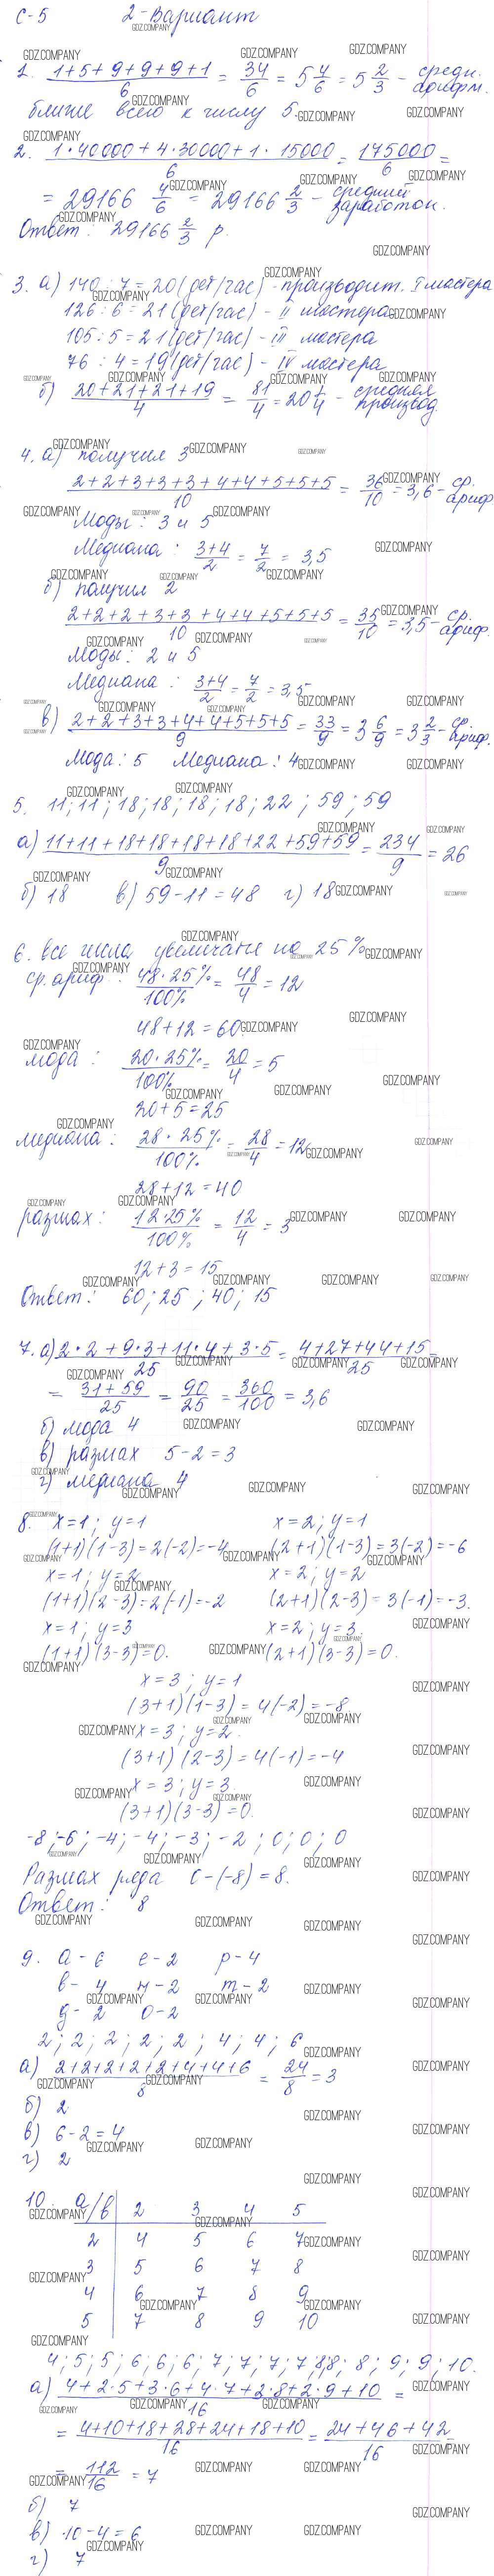 С-5 2-Вариант
1. (1+5+9+9+9+1)/6 = 34/6 = 5 4/6 = 5 2/3 - средн. арифм.
ближе всего к числу 5.
2. (1·40000+4·30000+1·15000)/6 = 175000/6 =
= 29166 4/6 = 29166 2/3 - средний заработок.
Ответ: 29166 2/3 р.
3. а) 140:7=20(дет/час)-производит. I мастера
126:6=21(дет/час)-II мастера
105:5=21(дет/час)-III мастера
76:4=19(дет/час)-IV мастера
б) (20+21+21+19)/4 = 81/4 = 20 1/4 - средняя производ.
4. а) получил 3
(2+2+3+3+3+4+4+5+5+5)/10 = 36/10 = 3,6 - ср. ариф.
Моды: 3 и 5
Медиана: (3+4)/2 = 7/2 = 3,5
б) получил 2
(2+2+2+3+3+4+4+5+5+5)/10 = 35/10 = 3,5 - ср. ариф.
Моды: 2 и 5
Медиана: (3+4)/2 = 7/2 = 3,5
в) (2+2+3+3+4+4+5+5+5)/9 = 33/9 = 3 6/9 = 3 2/3 - ср. ариф.
Мода: 5 Медиана: 4
5. 11; 11; 18; 18; 18; 18; 22; 59; 59
а) (11+11+18+18+18+18+22+59+59)/9 = 234/9 = 26
б) 18 в) 59-11=48 г) 18
6. все числа увеличание на 25%
ср. ариф: (48·25%)/100% = 48/4 = 12
48+12=60
мода: (20·25%)/100% = 20/4 = 5
20+5=25
медиана: (28·25%)/100% = 28/4 = 12
28+12=40
размах: (12·25%)/100% = 12/4 = 3
12+3=15
Ответ: 60; 25; 40; 15
7. а) (2·2+9·3+11·4+3·5)/25 = (4+27+44+15)/25 =
= (31+59)/25 = 90/25 = 360/100 = 3,6
б) мода 4
в) размах 5-2=3
г) медиана 4
8. x=1; y=1 x=2; y=1
(1+1)(1-3)=2(-2)=-4 (2+1)(1-3)=3(-2)=-6
x=1; y=2 x=2; y=2
(1+1)(2-3)=2(-1)=-2 (2+1)(2-3)=3(-1)=-3.
x=1; y=3 x=2; y=3.
(1+1)(3-3)=0. (2+1)(3-3)=0.
x=3; y=1
(3+1)(1-3)=4(-2)=-8
x=3; y=2.
(3+1)(2-3)=4(-1)=-4
x=3; y=3
(3+1)(3-3)=0.
-8; -6; -4; -4; -3; -2; 0; 0; 0
Размах ряда 0-(-8)=8.
Ответ: 8
9. а-6 е-2 р-4
в-4 н-2 т-2
д-2 о-2
2; 2; 2; 2; 2; 4; 4; 6
а) (2+2+2+2+2+4+4+6)/8 = 24/8 = 3
б) 2
в) 6-2=4
г) 2
10. a/b 2 3 4 5
2 4 5 6 7
3 5 6 7 8
4 6 7 8 9
5 7 8 9 10
4; 5; 5; 6; 6; 6; 7; 7; 7; 7; 8; 8; 8; 9; 9; 10.
а) (4+2·5+3·6+4·7+3·8+2·9+10)/16 =
= (4+10+18+28+24+18+10)/16 = (24+46+42)/16 =
= 112/16 = 7
б) 7
в) 10-4=6
г) 7